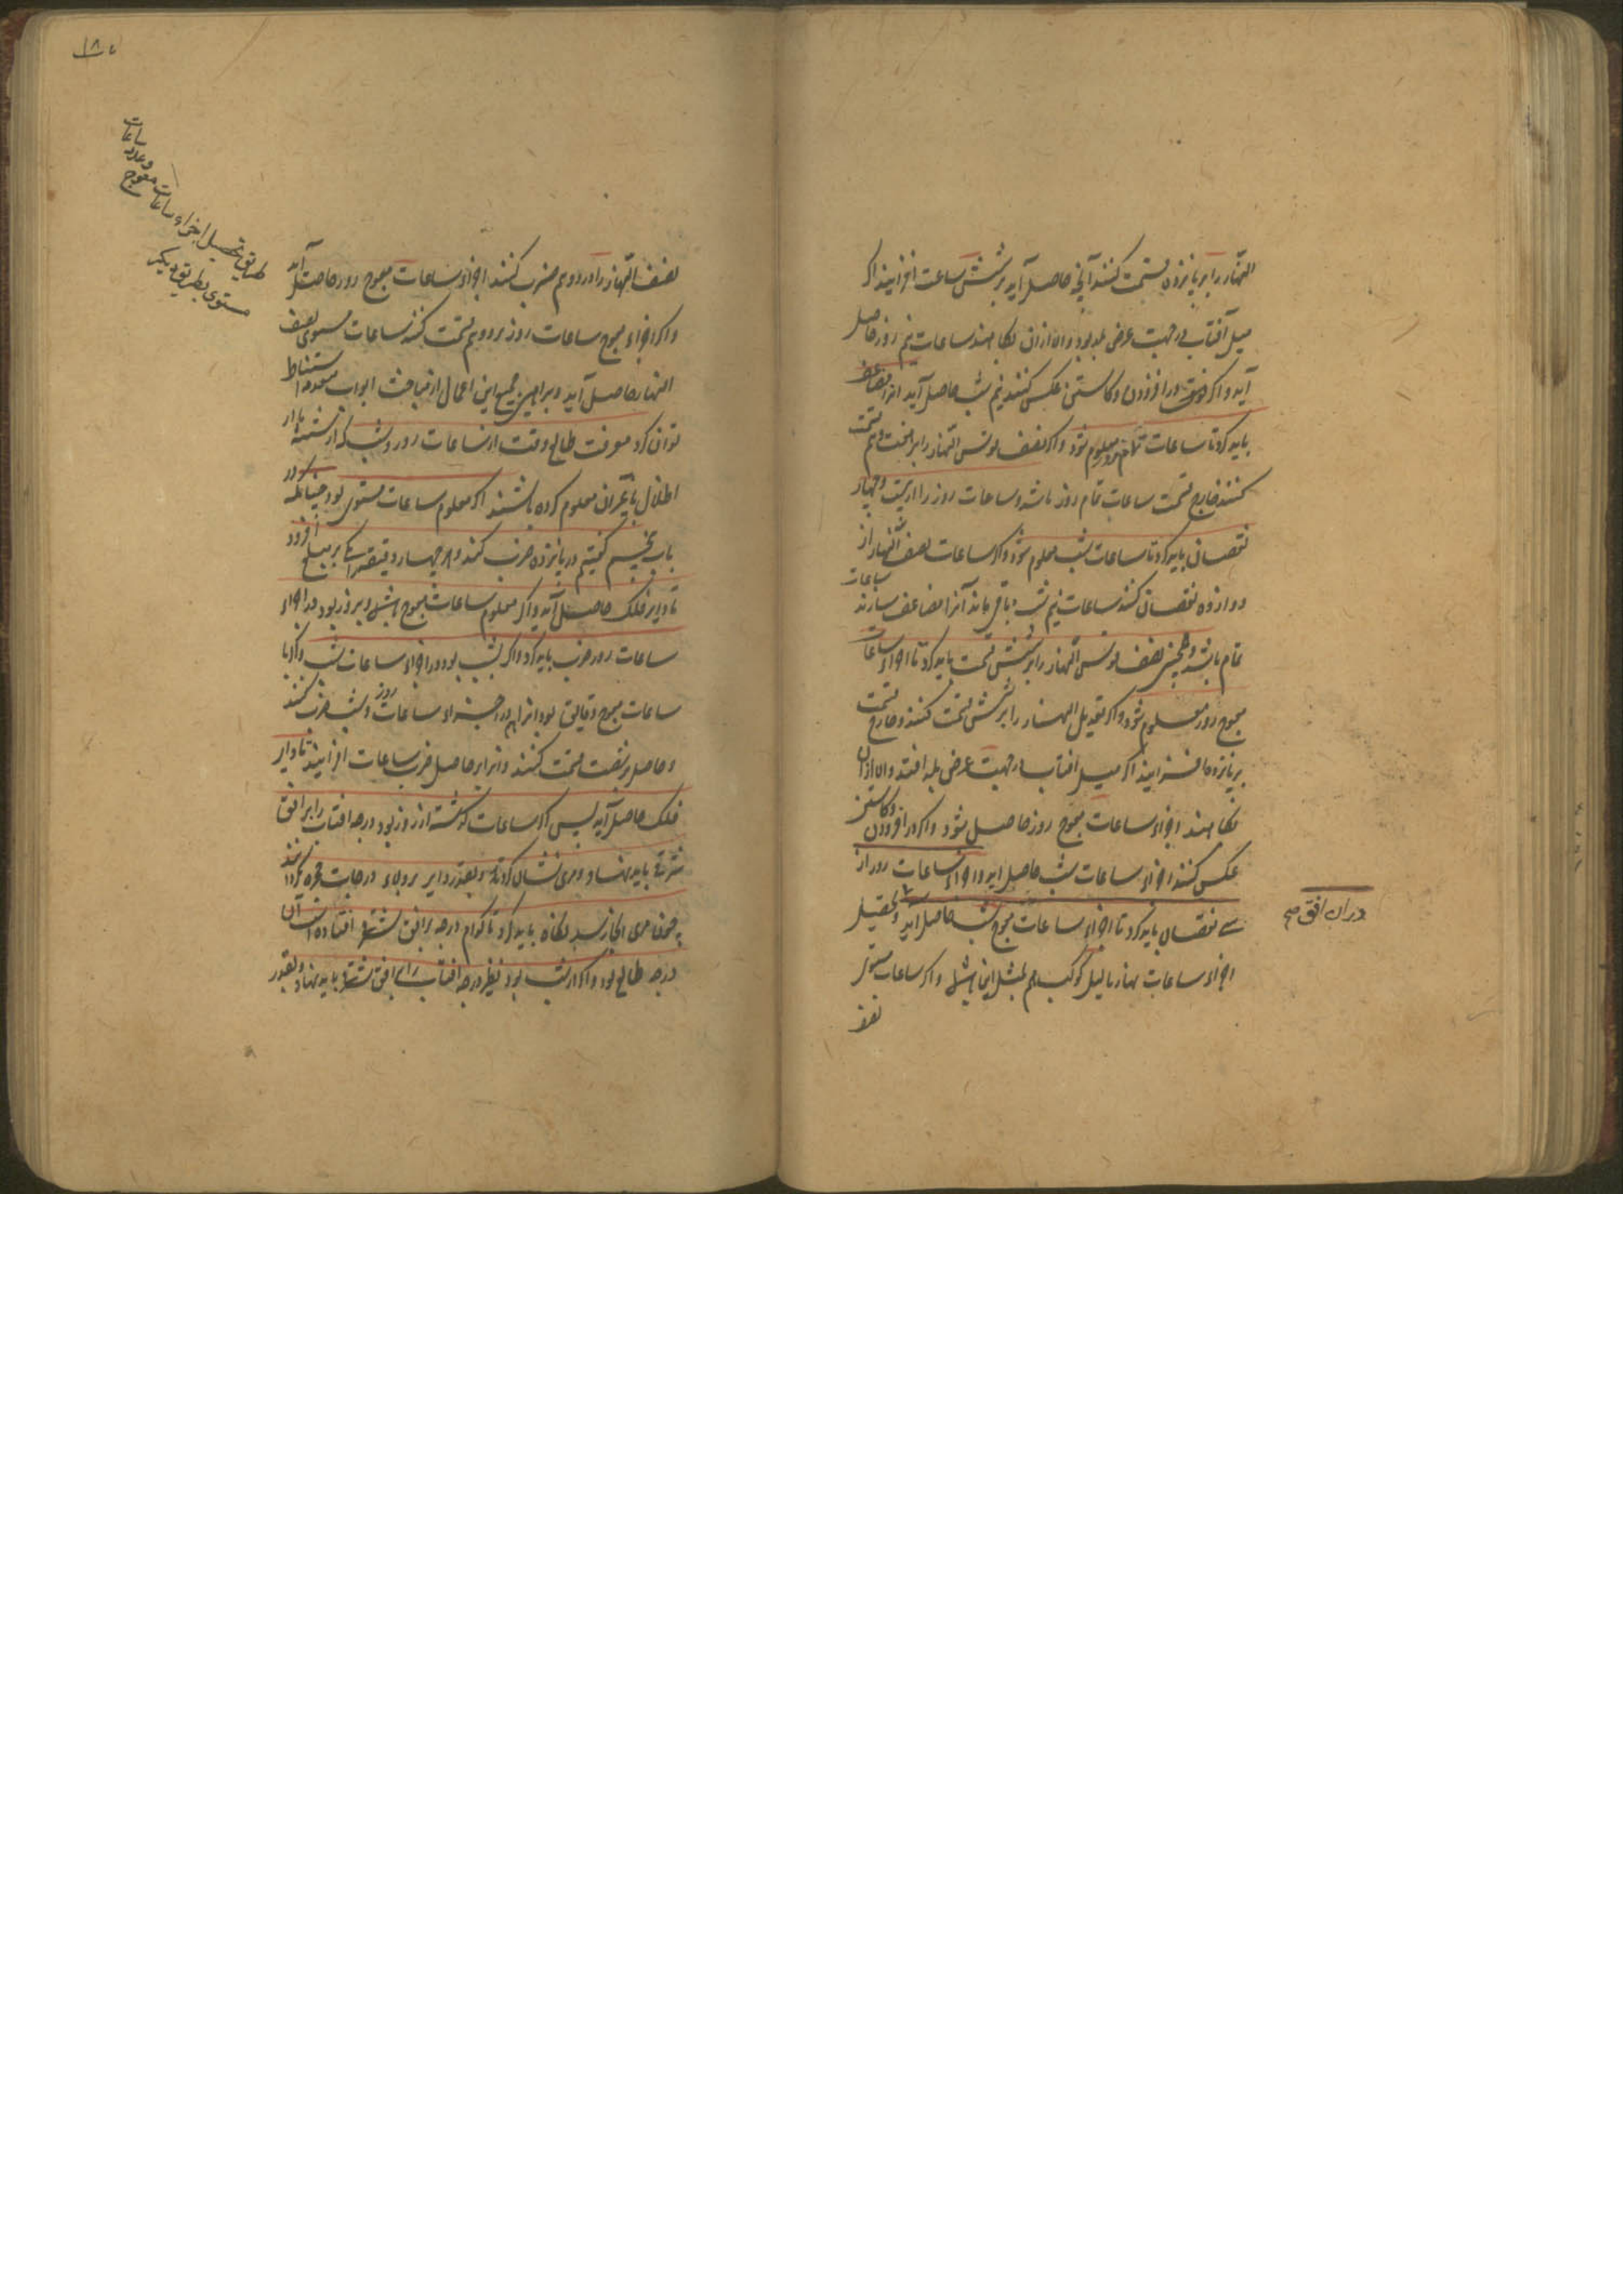 النهار را بر پانزده قسمت کنند آنچه حاصل آید بر شش ساعت افزایند اگر
میل آفتاب در جهت عرض بلد بود والا از آن بکاهند ساعات نیم روز حاصل
آید و اگر در افزودن و کاستن عکس کنند نیم شب حاصل آید انرا مضاعف
باید کرد تا ساعات تمام روز معلوم شود و اگر نصف قوس النهار را بر هفت و نیم قسمت
کنند خارج قسمت ساعات تمام روز باشد و ساعات روز را از بیست و چهار
نقصان باید کرد تا ساعات شب معلوم شود و اگر ساعات نصف النهار از
دوازده نقصان کنند ساعات نیم شب باقی ماند آنرا مضاعف سازند ساعات
تمام باشد و همچنین نصف قوس النهار را بر شش قسمت باید کرد تا اجزاء ساعات
معوج روز معلوم شود و اگر تعدیل النهار را بر شش قسمت کنند و خارج قسمت
بر پانزده افزایند اگر میل افتاب در جهت عرض بلد افتد والا از آن
بکاهند اجزاء ساعات معوج روز حاصل شود و اگر در افزودن و کاستن
عکس کنند اجزاء ساعات شب حاصل اید و اجزاء ساعات روز از
سی نقصان باید کرد تا اجزاء ساعات معوج شب حاصل آید و تحصیل
اجزاء ساعات نهار یا لیل کوکب هم بمثل این باشد و اگر ساعات مستوی
نصف
در ان افق صح
۱۸۵
طریق تحصیل اجزاء ساعات معوج وعدد ساعات
مستوی بطریق دیگر
نصف النهار را در دو و نیم ضرب کنند اجزاء ساعات معوج روز حاصل آید
و اگر اجزاء معوج ساعات روز بر دو و نیم قسمت کنند ساعات مستوی نصف
النهار حاصل آید و براهین جمیع این اعمال از مباحث ابواب متقدمه استنباط
توان کرد معرفت طالع وقت از ساعات روز و شب که از شیشه یا از
اظلال یا غیر آن معلوم کرده باشند اگر معلوم ساعات مستوی بود چنانکه در
باب پنجم گفتیم در پانزده ضرب کنند و هر چهار دقیقه را یکی بر مبلغ افزود
تا دایر فلک حاصل آید و اگر معلوم ساعات معوج باشد و بروز بود در اجزاء
ساعات روز ضرب باید کرد و اگر بشب بود در اجزاء ساعات شب و اگر با
ساعات معوج دقایق بود انرا هم در اجزاء ساعات روز و شب ضرب کنند
و حاصل بر شصت قسمت کنند و انرا بر حاصل ضرب ساعات افزایند تا دایر
فلک حاصل آید پس اگر ساعات گذشته از روز بود درجه افتاب را بر افق
شرقی باید نهاد و مری نشان کردن و بقدر دایر بر ولاء درجات حجره گردانند
چون مری انجا رسد نگاه باید کرد تا کدام درجه بر افق شرقی افتاده است آن
درجه طالع بود و اگر از شب بود نظیر درجه افتاب را بر افق شرقی باید نهاد و بقدر